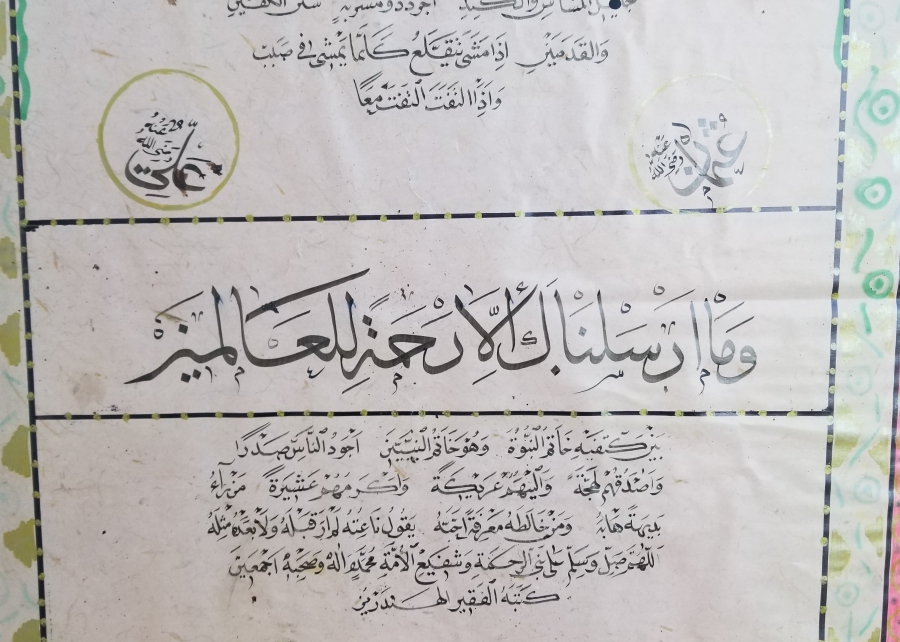 جليل المشاش والكتد اجرد ذو مسربة شثن الكفين
والقدمين اذا مشى يتقلع كانما يمشي في صبب
واذا التفت التفت معا
عثمن رضي الله عنه
علي رضي الله عنه
وَمَا اَرْسَلْنَاكَ اِلَّا رَحْمَةً لِلعَالَمِينَ
بين كتفيه خاتم النبوة وهو خاتم النبيين اجود الناس صدرا
واصدقهم لهجة والينهم عريكة واكرمهم عشيرة من راه
بديهة هابه ومن خالطه معرفة احبه يقول ناعته لم ار قبله ولا بعده مثله
اللهم صل وسلم على نبي الرحمة وشفيع الامة محمد واله وصحبه اجمعين
كتبه الفقير